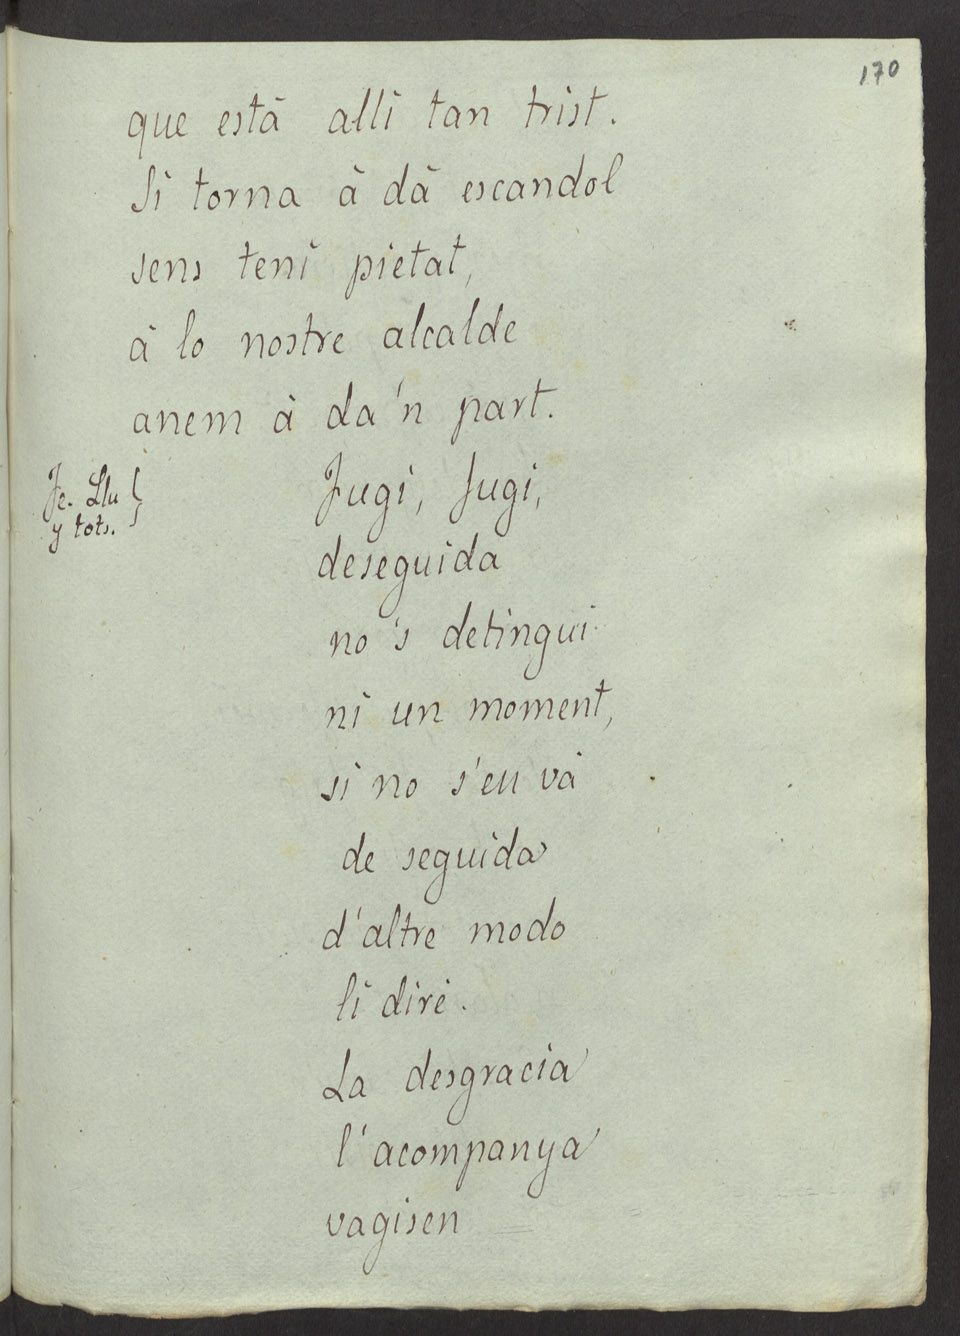 170
que està alli tan trist.
Si torna à dà escandol
sens teni pietat,
à lo nostre alcalde
anem à da'n part.
Je. Llu
y tots.
Fugi, fugi,
deseguida
no's detingui
ni un moment,
si no s'eu và
de seguida
d'altre modo
li diré.
La desgracia
l'acompanya
vagisen